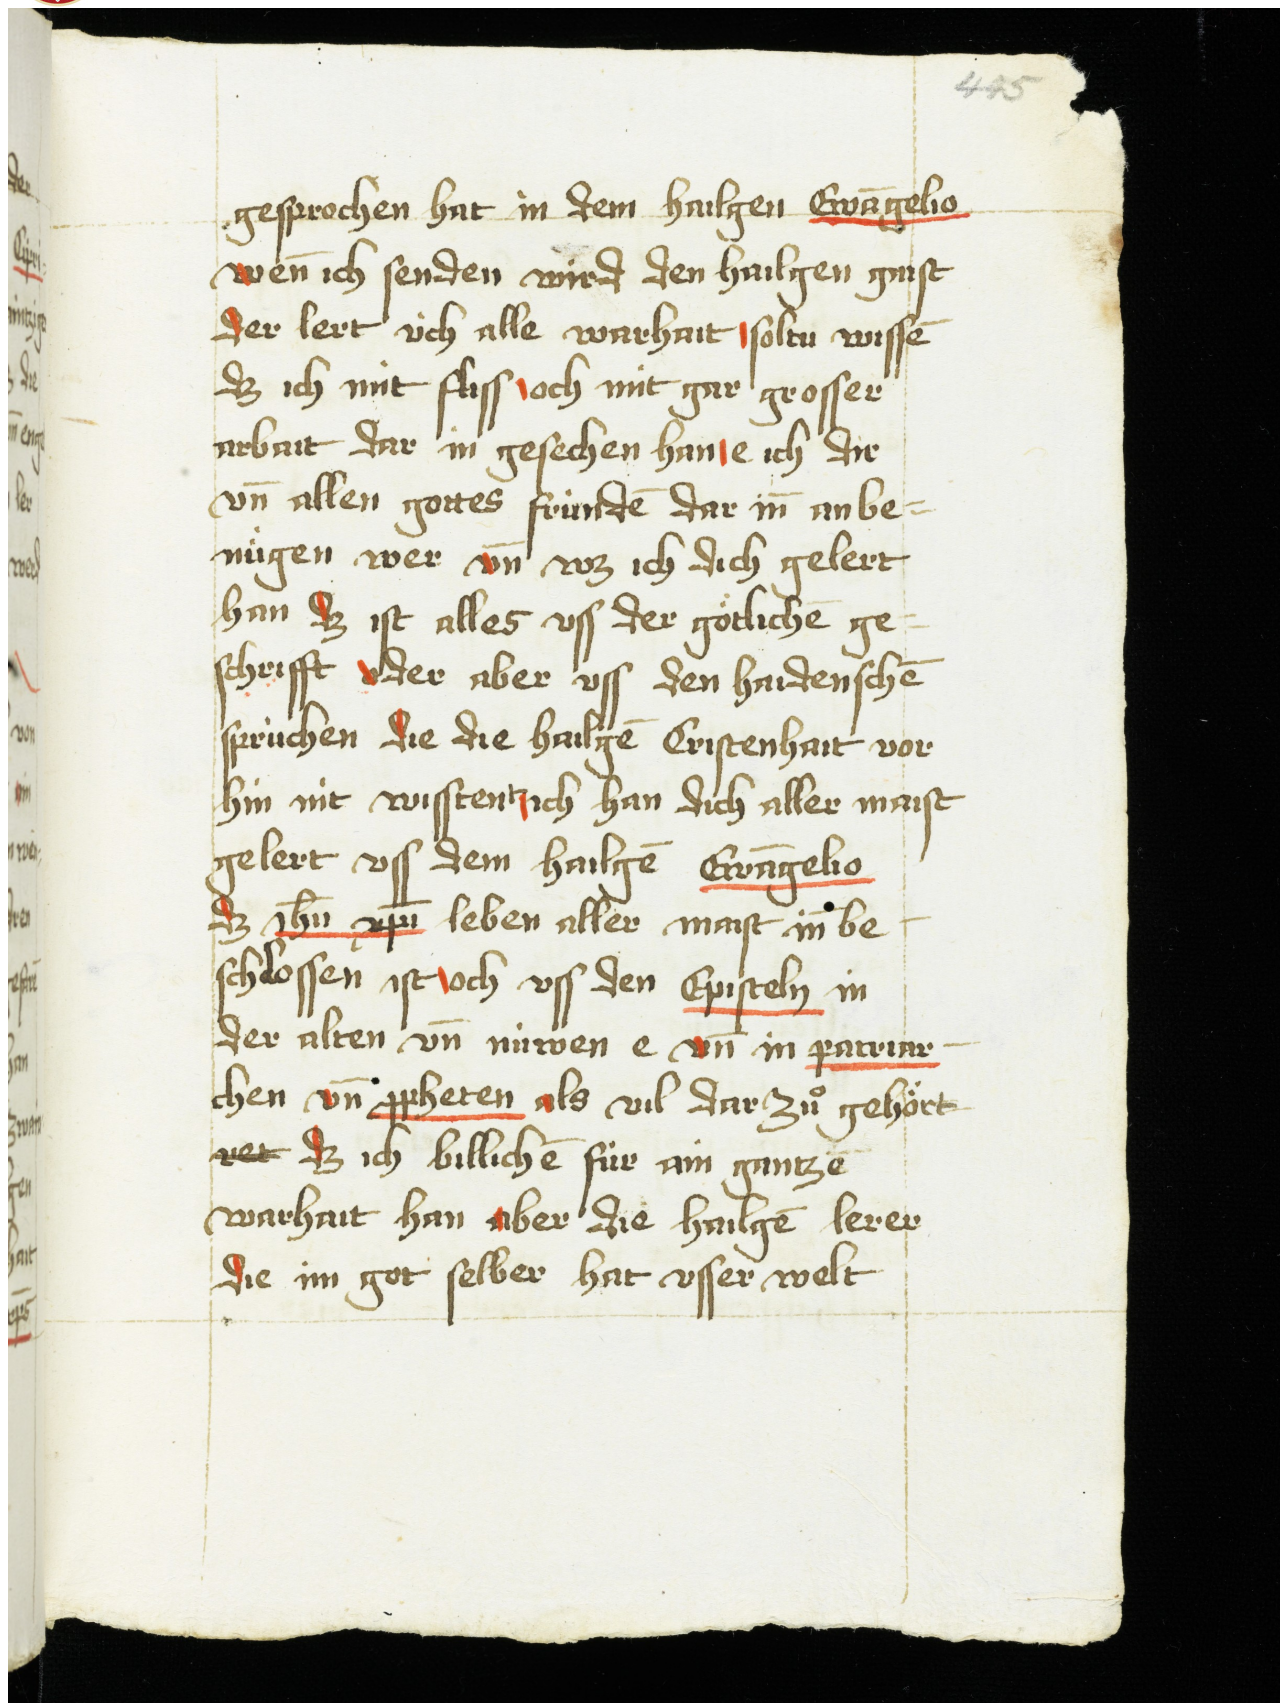 445
gesprochen hat in dem hailgen Ewāgelio
wen̄ ich senden wird den hailgen gaist
der lert üch alle warhait soltu wissē
dz ich mit fliss och mit gar grosser
arbait dar in gesechen han e ich dir
vn̄ allen gottes fründē dar in̄ an be=
nügen wer vn̄ wz ich dich gelert
han dz ist alles vss der götlichē ge=
schrifft oder aber vss den haidenschē
sprüchen die die hailgē Cristenhait vor
hin nit wisstentz ich han dich aller maist
gelert vss dem hailgē Ewāgelio
dz Jhū xp̄i leben aller maist in̄ be-
schlossen ist och vss den Episteln in
der alten vn̄ nüwen e vn̄ in patriar-
chen vn̄ ꝓpheten als vil dar zuͦ gehört
ret dz ich billichē für ain gantzē
warhait han aber die hailgē lerer
die im got selber hat vsser welt